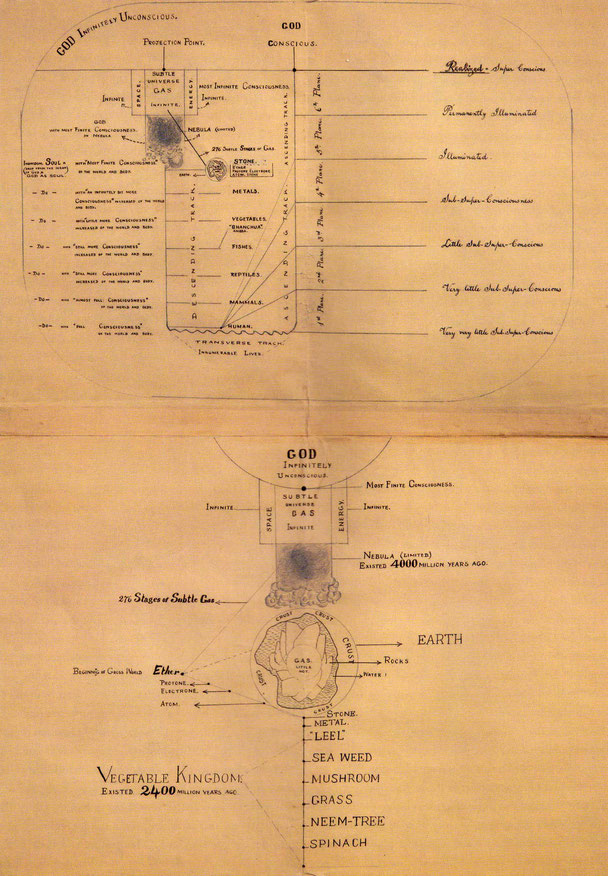 GOD INFINITELY UNCONSCIOUS.
GOD
CONSCIOUS.
PROJECTION POINT.
SUBTLE
UNIVERSE
GAS
INFINITE.
SPACE
ENERGY.
INFINITE
MOST FINITE CONSCIOUSNESS.
INFINITE.
GOD
WITH MOST FINITE CONCIOUSNESS.
IN NEBULA
NEBULA (LIMITED)
276 SUBTLE STAGES OF GAS
STONE.
ETHER
PROTONE ELECTRONE
ATOM. STONE
EARTH
INDIVIDUAL SOUL
GOD AS SOUL.
WITH "MOST FINITE CONSCIOUSNESS"
OF THE WORLD AND BODY.
- DO -
CONSCIOUSNESS" INCREASED OF THE WORLD
AND BODY.
METALS.
- DO -
WITH "LITTLE MORE CONSCIOUSNESS"
INCREASED OF THE WORLD AND BODY.
VEGETABLES.
"BHANCHUA"
- DO -
AND "STILL MORE CONSCIOUSNESS"
INCREASED OF THE WORLD AND BODY.
FISHES.
- DO -
AND "STILL MORE CONSCIOUSNESS"
INCREASED OF THE WORLD AND BODY.
REPTILES.
- DO -
AND "ALMOST FULL CONSCIOUSNESS"
OF THE WORLD AND BODY.
MAMMALS.
- DO -
AND "FULL CONSCIOUSNESS"
OF THE WORLD AND BODY.
HUMAN.
DESCENDING TRACK.
ASCENDING TRACK.
ASCENDING TRACK.
TRANSVERSE TRACK.
INNUMERABLE LIVES.
6th Plane.
5th Plane.
4th Plane.
3rd Plane.
2nd Plane.
1st Plane.
Realized - Super Conscious
Permanently Illuminated
Illuminated
Sub-Super-Consciousness
Little Sub-Super-Conscious
Very little Sub-Super-Conscious
Very very little Sub-Super-Conscious
GOD
INFINITELY
UNCONSCIOUS.
MOST FINITE CONSCIOUSNESS.
SUBTLE
UNIVERSE
GAS
INFINITE
SPACE
ENERGY.
INFINITE
INFINITE.
NEBULA (LIMITED)
EXISTED 4000 MILLION YEARS AGO.
276 STAGES OF SUBTLE GAS
CRUST
CRUST
CRUST
CRUST
CRUST
GAS
LITTLE
HOT.
EARTH
ROCKS
WATER
BEGINNING OF GROSS WORLD
ETHER.
PROTONE.
ELECTRONE.
ATOM.
STONE.
METAL.
"LEEL"
SEA WEED
MUSHROOM
GRASS
NEEM-TREE
SPINACH
VEGETABLE KINGDOM
EXISTED 2400 MILLION YEARS AGO